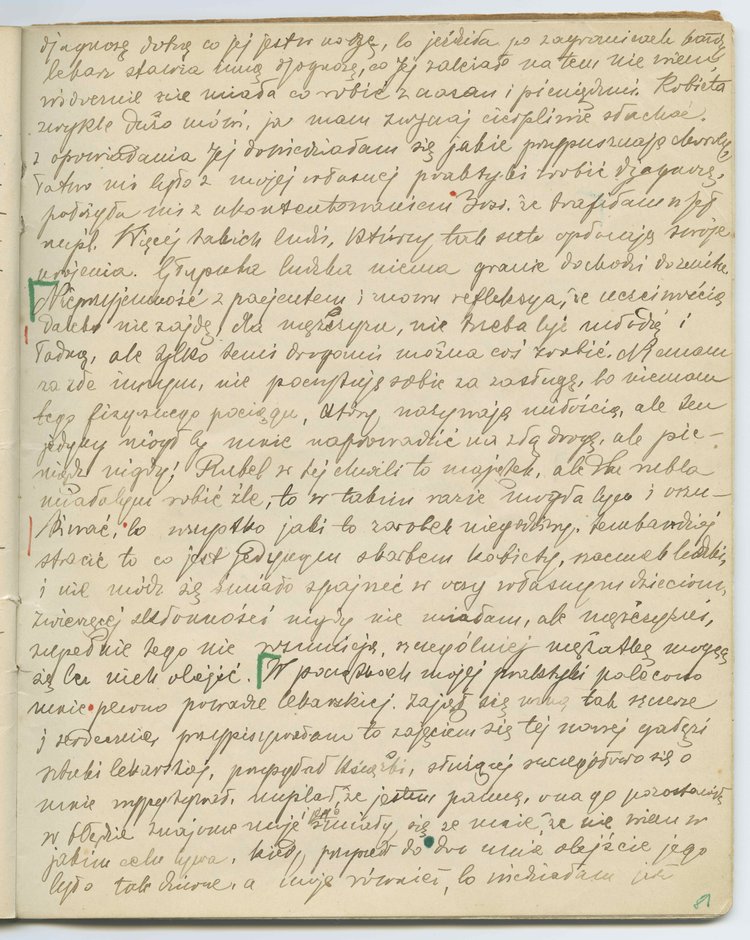 djagnozę dobrą co jej jest w nodze, bo jeździła po zagranicach każdy
lekarz stawia inną djagnozę, co jej zależało na tem nie wiem,
widocznie nie miała co robić z czasem i pieniędzmi. Kobieta
zwykle dużo mówi, ja mam zwyczaj cierpliwie słuchać.
z opowiadania jej dowiedziałam się jakie przypuszczają choroby,
Łatwo mi było z mojej własnej praktyki zrobić djagnozę,
położyła mi z ukontentowaniem 300. że trafiłam w jej
Więcej takich ludzi, którzy tak suto opłacają swoje
urojenia. Głupota ludzka niema granic dochodzi do
Nieprzyjemność z pacjentem i znowu refleksya, że uczciwością
daleko nie zajdę, dla mężczyzn, nie trzeba być młodą i
ładną, ale tylko temi drogami można coś zrobić. Nie mam
za złe innym, nie poczytuję sobie za zasługę, bo niemam
tego fizycznego pociągu, który nazywają miłością, ale ten
jedyny mógł by mnie naprowadzić na złą drogę, ale pie-
niądz nigdy! Rubel w tej chwili to majątek, ale dla rubla
miałabym robić źle, to w takim razie mogła bym i oszu-
kiwać, bo wszystko jaki to zarobek niegodziwy, tembardziej
stracić to co jest jedynym skarbem kobiety, szacunek ludzki,
i nie módz się śmiało spojrzeć w oczy własnym dzieciom,
zwierzęcej skłonności nigdy nie miałam, ale mężczyźni,
zupełnie tego nie rozumieją, szczególniej mężatkę mogą
się bez nich obejść. W początkach mojej praktyki polecono
mnie pewno powadze lekarskiej. Zajął się mną tak szczerze
i serdecznie, przypisywałam to zajęciem się tej nowej gałęzi
sztuki lekarskiej, przysyłał książki, służącej szczegółowo się o
mnie wypytywał, myślał że jestem panną, ona go pozostawiła
w błędzie znajome moje śmiały się ze mnie, że nie wiem w
jakim celu bywa, kiedy przyszedł do do mnie obejście jego
było tak dziwne, a moje również, bo wiedziałam
81